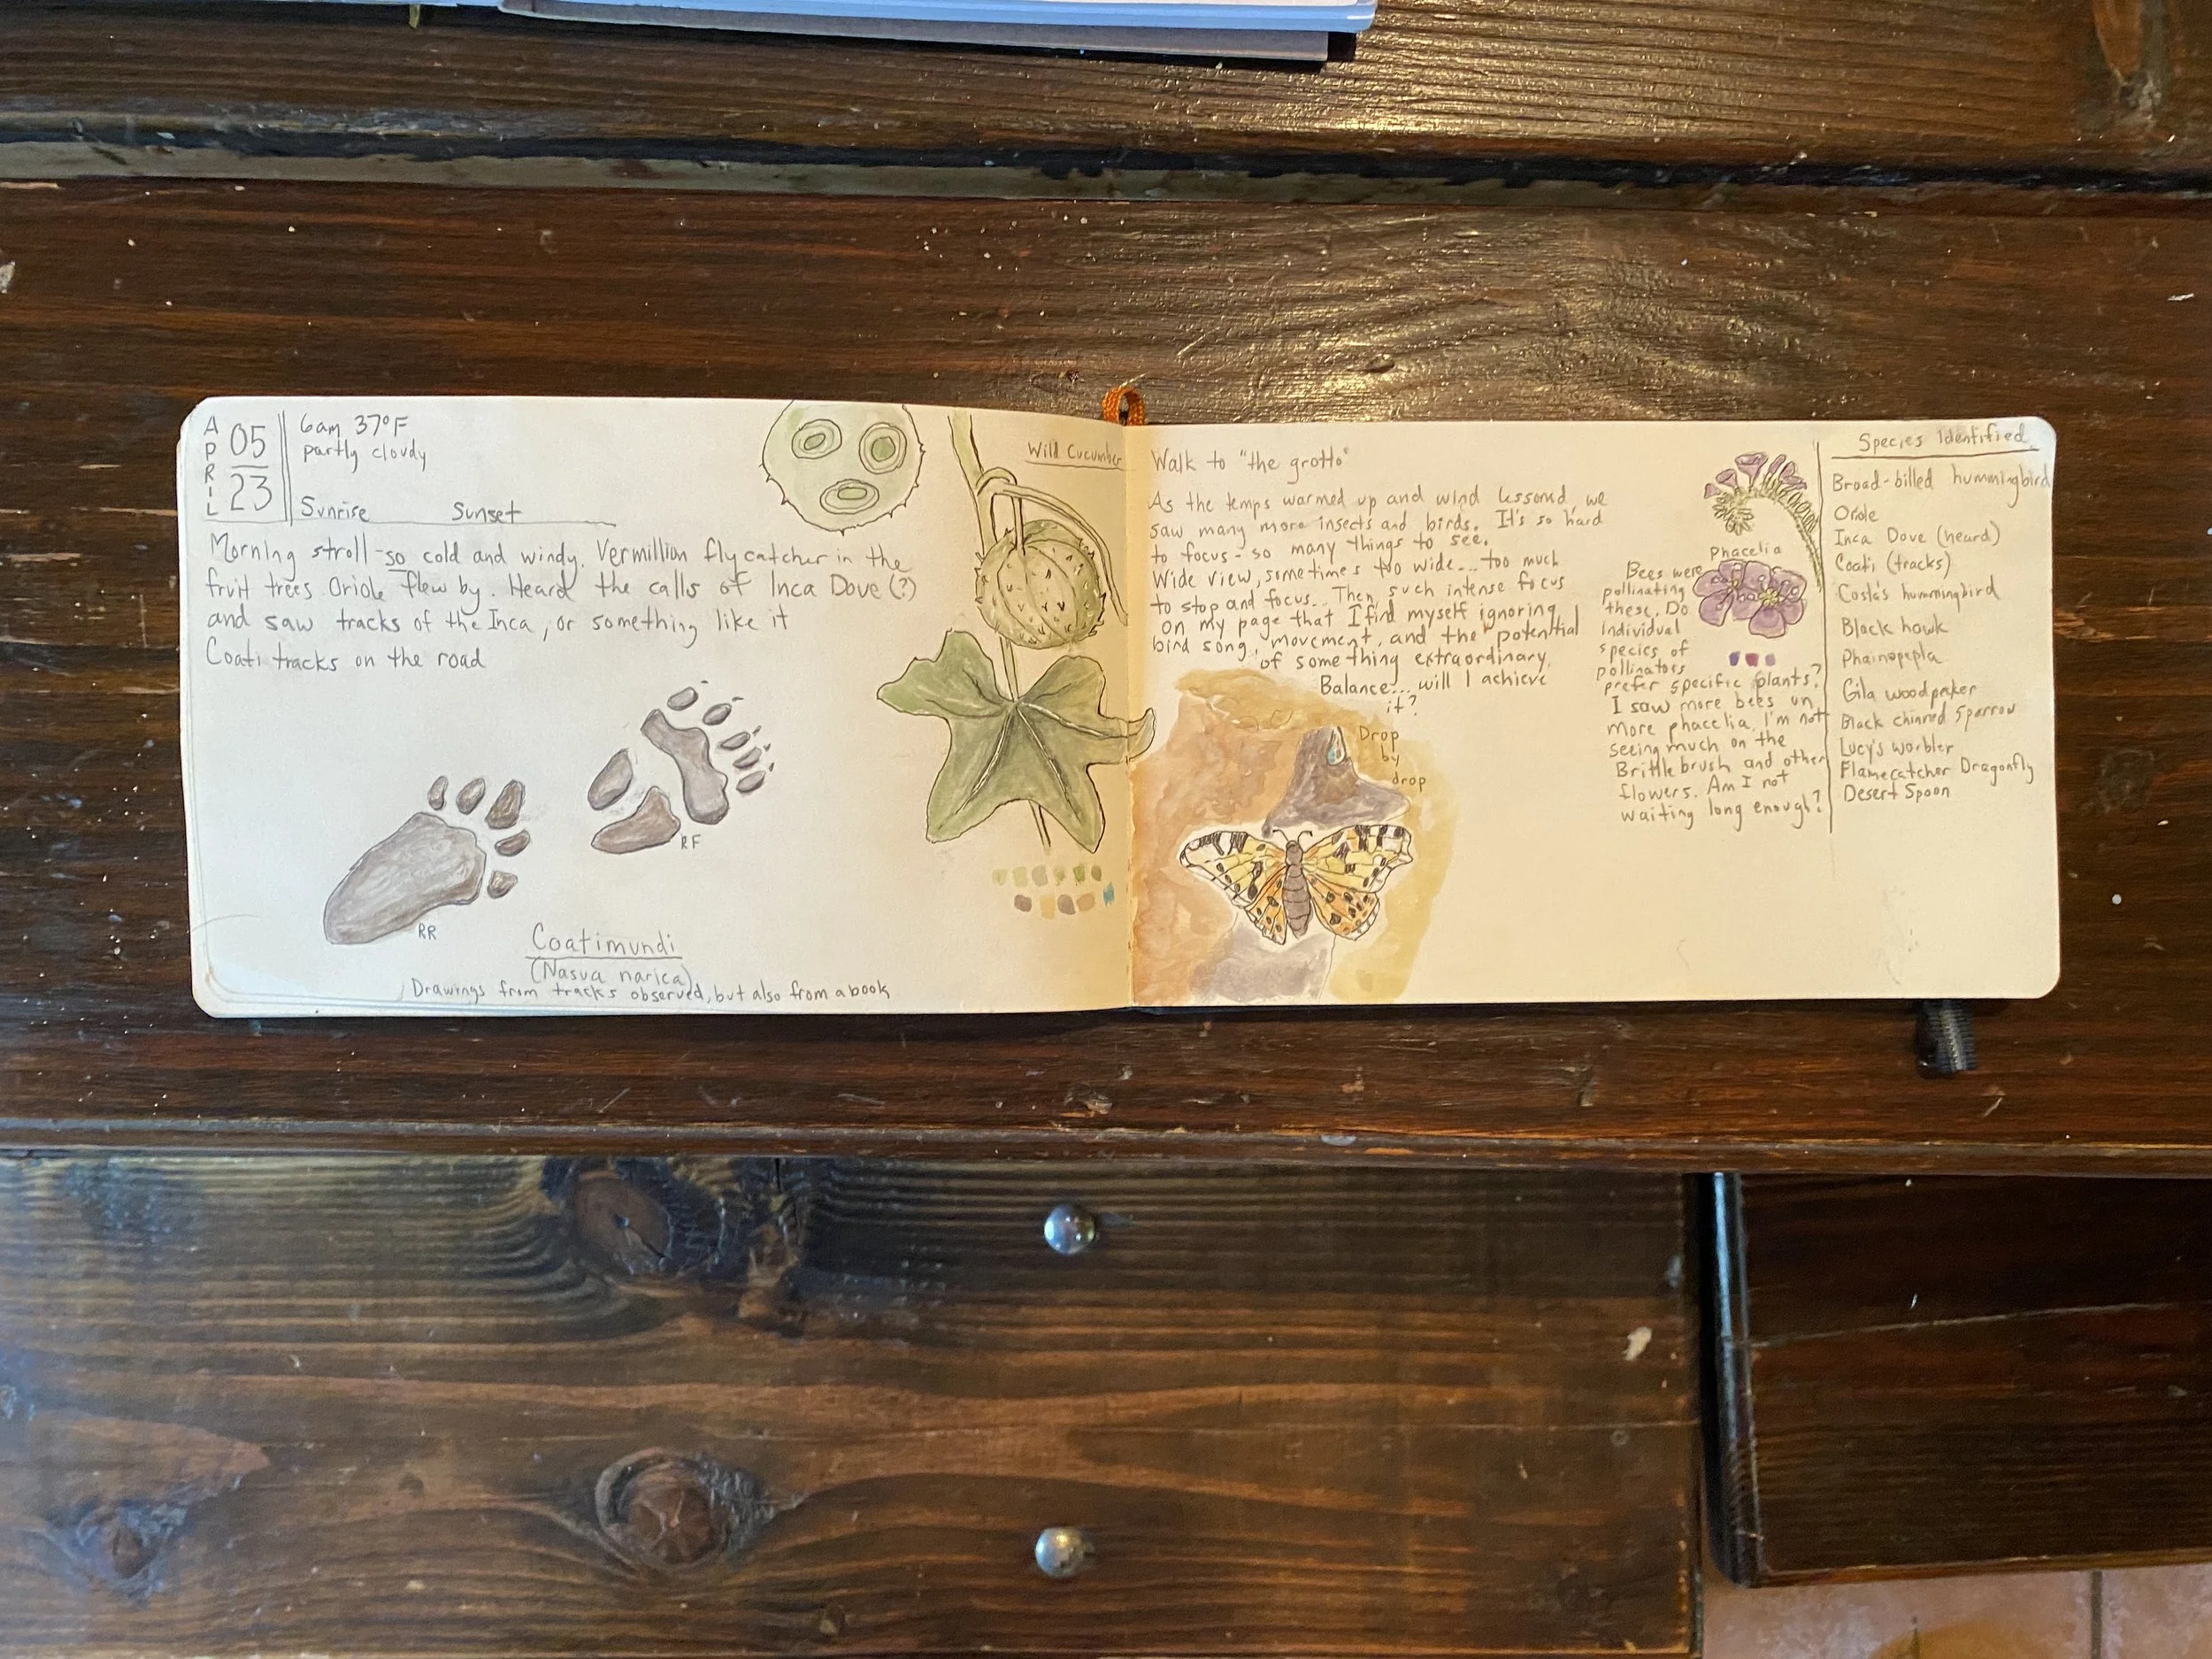 APRIL
05
23
6am 37°F
partly cloudy
Sunrise Sunset
Morning stroll-so cold and windy. Vermillion flycatcher in the
fruit trees. Oriole flew by. Heard the calls of Inca Dove (?)
and saw tracks of the Inca, or something like it
Coati tracks on the road
RF
RR
Coatimundi
(Nasua narica)
Drawings from tracks observed, but also from a book
Wild Cucumber
Walk to "the grotto"
As the temps warmed up and wind lessond, we
saw many more insects and birds. It's so hard
to focus - so many things to see.
Wide view, sometimes too wide... too much
to stop and focus... Then, such intense focus
on my page that I find myself ignoring
bird song, movement, and the potential
of something extraordinary.
Balance... will I achieve
it?
Drop
by
drop
Phacelia
Bees were
pollinating
these. Do
individual
species of
pollinators
prefer specific plants?
I saw more bees on
more phacelia. I'm not
seeing much on the
Brittlebrush and other
flowers. Am I not
waiting long enough?
Species Identified
Broad-billed hummingbird
Oriole
Inca Dove (heard)
Coati (tracks)
Costa's hummingbird
Black hawk
Phainopepla
Gila woodpeker
Black chinned Sparrow
Lucy's warbler
Flamecatcher Dragonfly
Desert Spoon